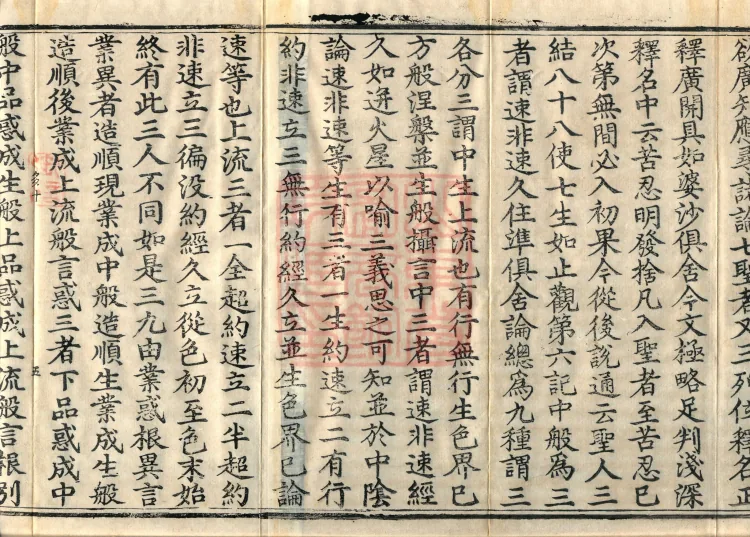 欲廣知應尋諸論七聖者又三列位釋名正
釋廣開具如婆沙俱舍今文極略足判淺深
釋名中云苦忍明發捨凡入聖者至苦忍已
次第無間必入初果今從後說通云聖人三
結八十八使七生如止觀第六記中般為三
者謂速非速久住準俱舍論總為九種謂三
各分三謂中生上流也有行無行生色界已
方般涅槃並生般攝言中三者謂速非速經
久如迸火星以喻三義思之可知並於中陰
論速非速等生有三者一生約速立二有行
約非速立三無行約經久立並生色界已論
速等也上流三者一全超約速立二半超約
非速立三徧没約經久立從色初至色末始
終有此三人不同如是三九由業惑根異言
業異者造順現業成中般造順生業成生般
造順後業成上流般言惑三者下品惑成中
五
般中品惑成生般上品惑成上流般言根別